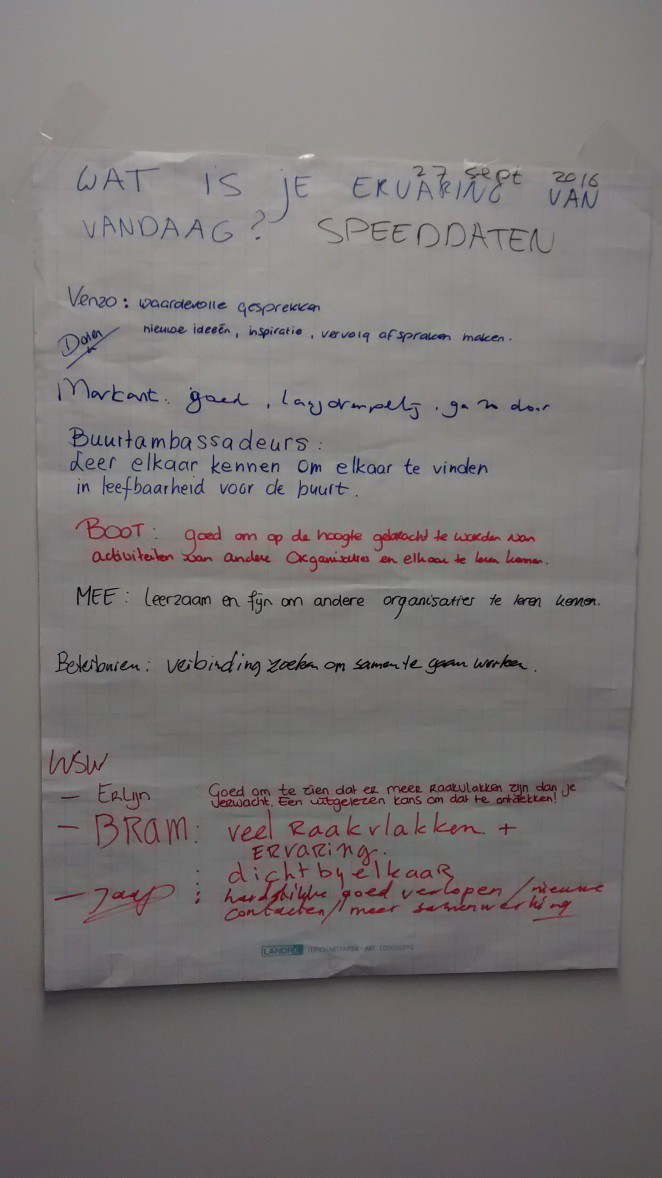 27 sept 2016
WAT IS JE ERVARING VAN
VANDAAG? SPEEDDATEN
Venzo: waardevolle gesprekken
nieuwe ideeën, inspiratie, vervolg afspraken maken.
Markant: goed, laagdrempelig, ga zo door
Buurtambassadeurs:
Leer elkaar kennen om elkaar te vinden
in leefbaarheid voor de buurt.
BOOT: goed om op de hoogte gebracht te worden van
activiteiten van andere organisaties en elkaar te leren kennen.
MEE: leerzaam en fijn om andere organisaties te leren kennen.
verbinding zoeken om samen te gaan werken.
WSW
- Erlijn Goed om te zien dat er meer Raakvlakken zijn dan je
verwacht. Een uitgelezen kans om dat te ontdekken!
- BRAM: veel Raakvlakken +
ERVARING.
: dichtbyelkaar
- Jaap : hartstikke goed verlopen / nieuwe
contacten / meer samenwerking
LANDRÉ